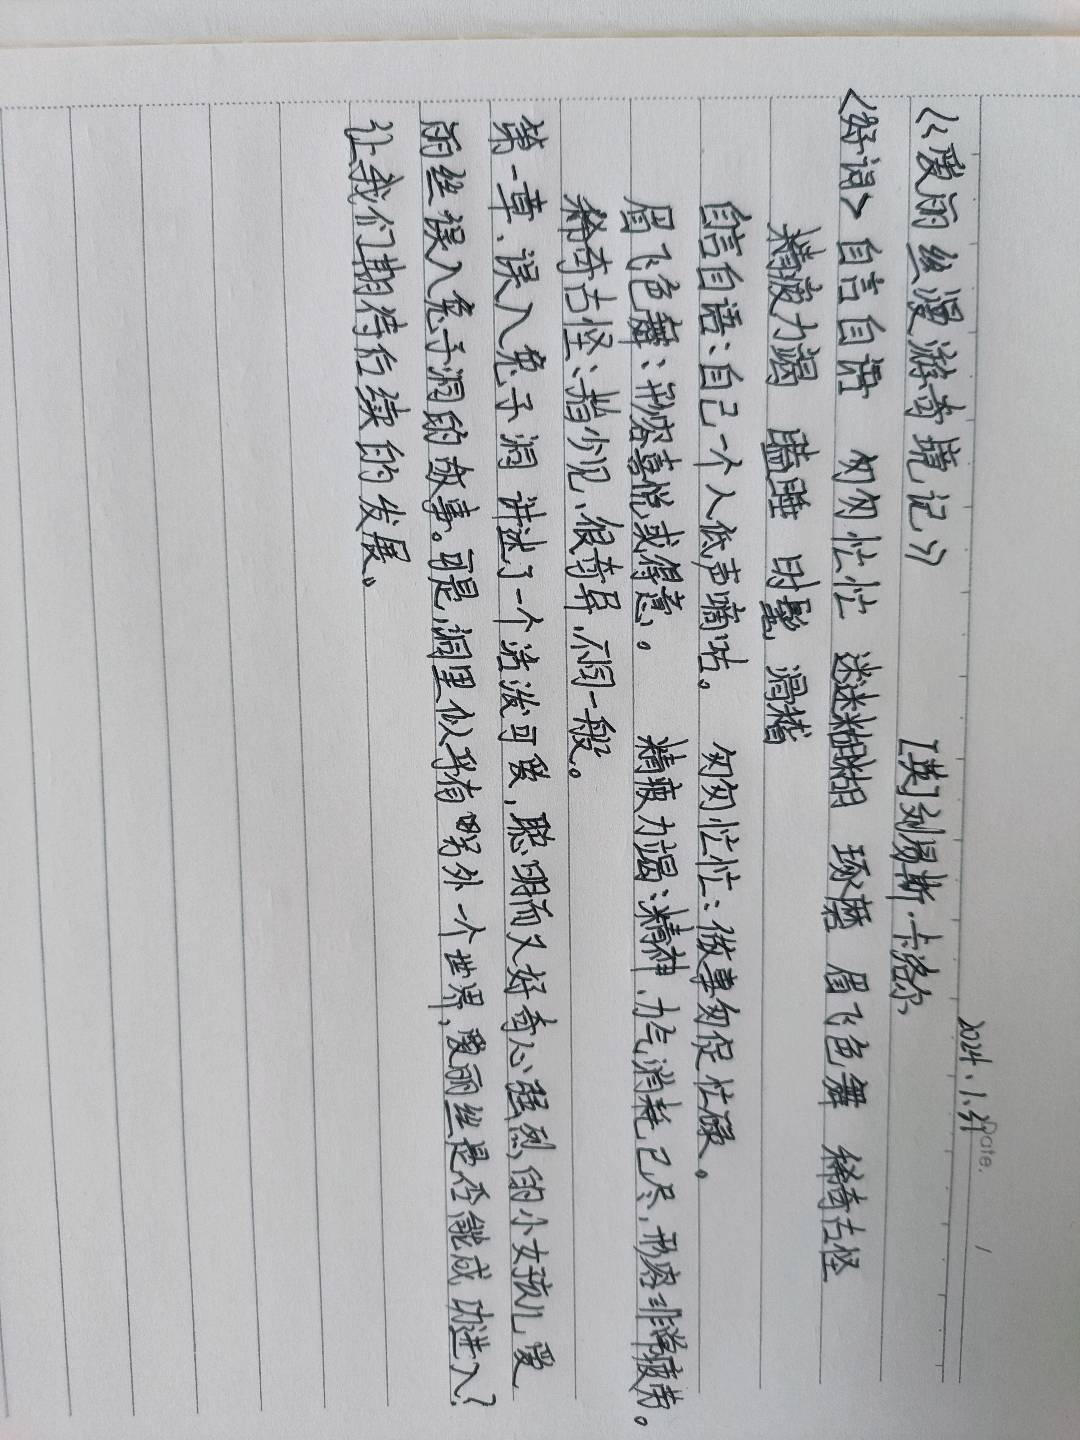 Date.
2024.1.31
《爱丽丝漫游奇境记》 [英]刘易斯·卡洛尔
<好词> 自言自语 匆匆忙忙 迷迷糊糊 琢磨 眉飞色舞 稀奇古怪
精疲力竭 瞌睡 时髦 滑稽
自言自语：自己一个人低声嘀咕。 匆匆忙忙：做事匆促忙碌。
眉飞色舞：形容喜悦或得意。 精疲力竭：精神、力气消耗已尽，形容非常疲劳。
稀奇古怪：指少见、很奇异、不同一般。
第一章、误入兔子洞 讲述了一个活泼可爱，聪明而又好奇心强烈的小女孩儿爱
丽丝误入兔子洞的故事。可是，洞里似乎有另外一个世界，爱丽丝是否能成功进入？
让我们期待后续的发展。